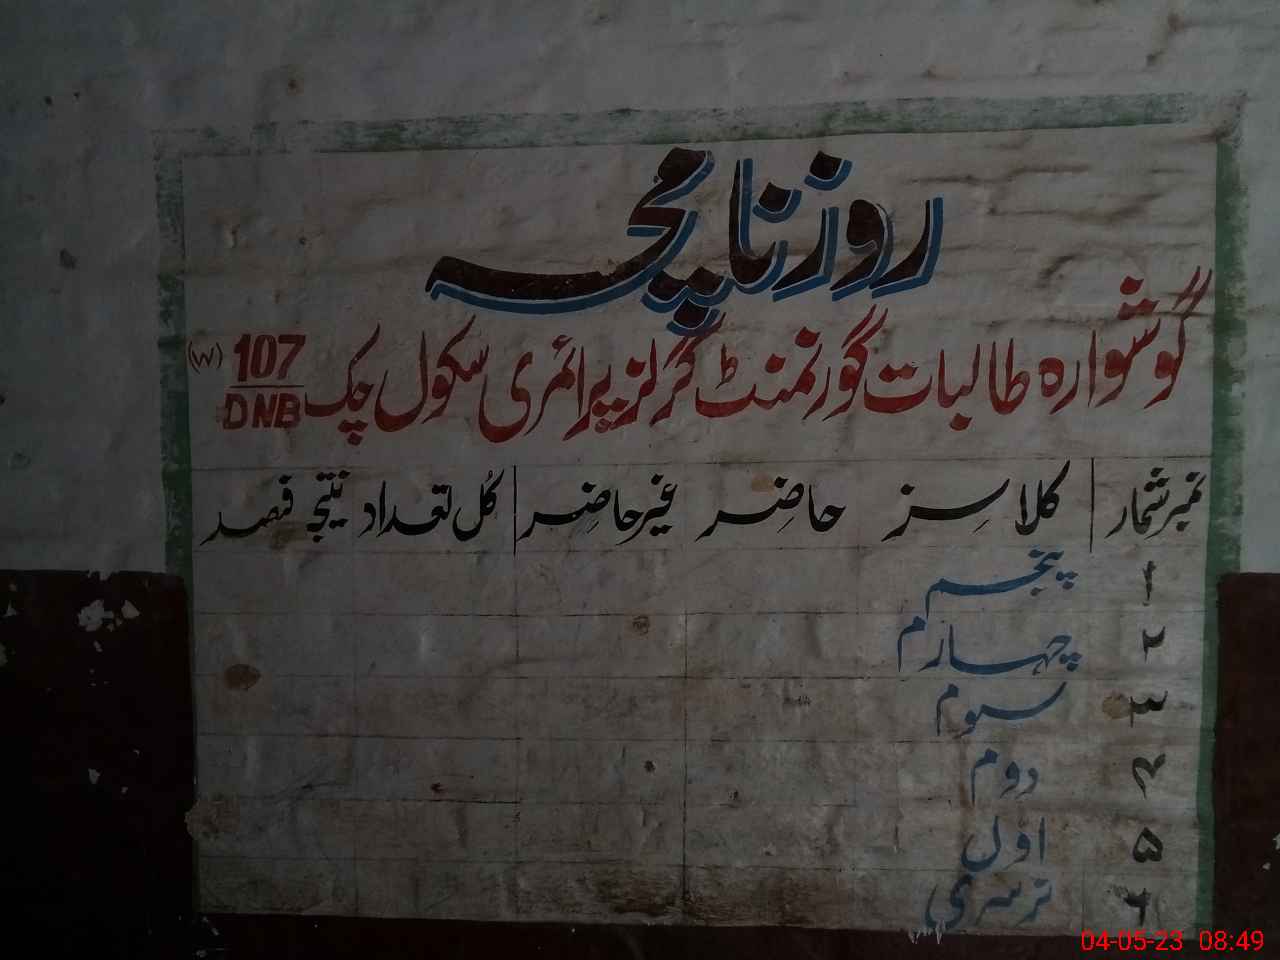 روزنامچہ
گوشوارہ طالبات گورنمنٹ گرلز پرائمری سکول چک 107/DNB (W)
نمبر شمار کلاسز حاضر غیر حاضر کل تعداد نتیجہ فیصد
۱ پنجم
۲ چہارم
۳ سوم
۴ دوم
۵ اول
۶ نرسری
04-05-23 08:49